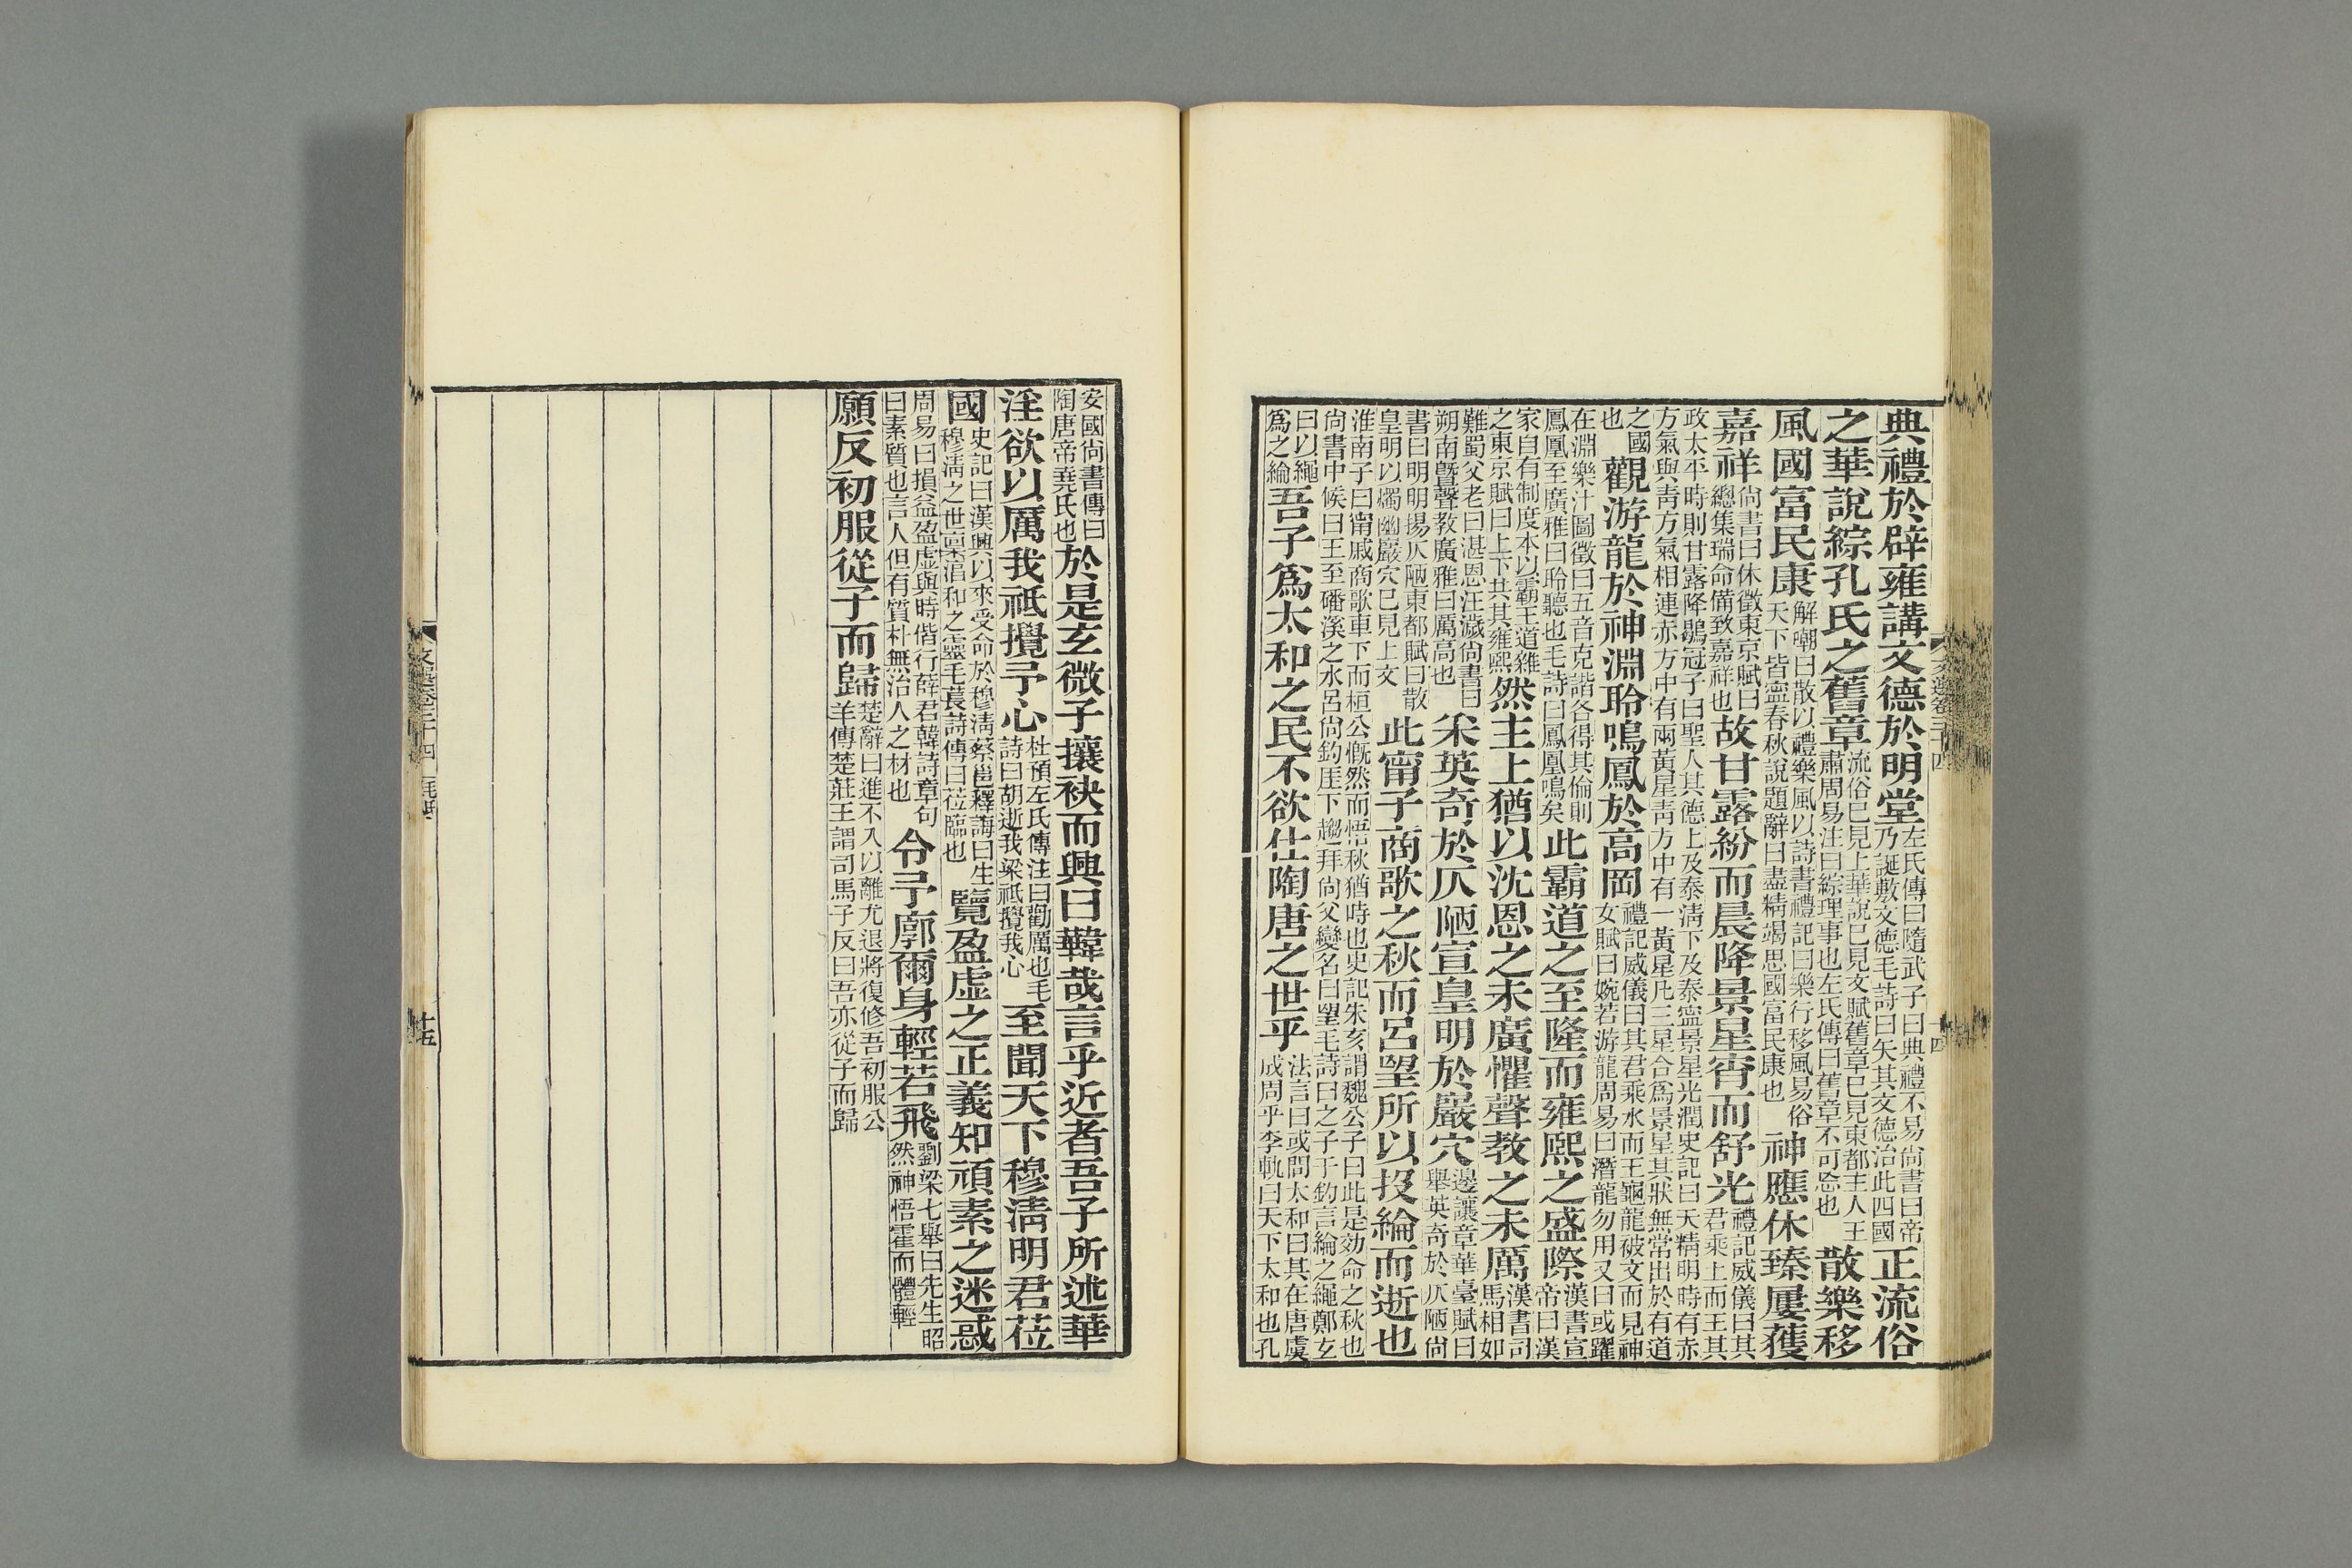 典禮於辟雍講文德於明堂左氏傳曰隨武子曰典禮不易尚書曰帝乃誕敷文德毛詩曰矢其文德洽此四國正流俗
之華說綜孔氏之舊章流俗已見上華說已見文賦舊章已見東都主人王肅周易注曰綜理事也左氏傳曰舊章不可忘也散樂移
風國富民康解嘲曰散以禮樂風以詩書禮記曰樂行移風易俗天下皆寍春秋說題辭曰盡精竭思國富民康也神應休臻屢獲
嘉祥尚書曰休徵東京賦曰總集瑞命備致嘉祥也故甘露紛而晨降景星宵而舒光禮記威儀曰其君乘土而王其
政太平時則甘露降鶡冠子曰聖人其德上及泰淸下及泰寍景星光潤史記曰天精明時有赤
方氣與靑方氣相連赤方中有兩黃星靑方中有一黃星凡三星合爲景星其狀無常出於有道
之國也觀游龍於神淵聆鳴鳳於高岡禮記威儀曰其君乘水而王龜龍破文而見神女賦曰婉若游龍周易曰潛龍勿用又曰或躍
在淵樂汁圖徵曰五音克諧各得其倫則鳳凰至廣雅曰聆聽也毛詩曰鳳凰鳴矣此霸道之至隆而雍熙之盛際漢書宣帝曰漢
家自有制度本以霸王道雜之東京賦曰上下共其雍熙然主上猶以沈恩之未廣懼聲教之未厲漢書司馬相如
難蜀父老曰湛恩汪濊尚書曰朔南曁聲教廣雅曰厲高也采英奇於仄陋宣皇明於巖穴邊讓章華臺賦曰舉英奇於仄陋尚
書曰明明揚仄陋東都賦曰散皇明以燭幽巖穴已見上文此甯子商歌之秋而呂望所以投綸而逝也
淮南子曰甯戚商歌車下而桓公慨然而悟秋猶時也史記朱亥謂魏公子曰此是効命之秋也
尚書中候曰王至磻溪之水呂尚釣厓下趨拜尚父變名曰望毛詩曰之子于釣言綸之繩鄭玄
曰以繩爲之綸吾子爲太和之民不欲仕陶唐之世乎法言曰或問太和曰其在唐虞成周乎李軌曰天下太和也孔
安國尚書傳曰陶唐帝堯氏也於是玄微子攘袂而興曰韡哉言乎近者吾子所述華
淫欲以厲我祇攪予心杜預左氏傳注曰勸厲也毛詩曰胡逝我梁祇攪我心至聞天下穆淸明君莅
國史記曰漢興以來受命於穆淸蔡邕釋誨曰生穆淸之世稟淯和之靈毛萇詩傳曰莅臨也覽盈虛之正義知頑素之迷惑
周易曰損益盈虛與時偕行薛君韓詩章句曰素質也言人但有質朴無治人之材也令予廓爾身輕若飛劉梁七舉曰先生昭然神悟霍而體輕
願反初服從子而歸楚辭曰進不入以離尤退將復修吾初服公羊傳楚莊王謂司馬子反曰吾亦從子而歸
文選卷三十四
十五